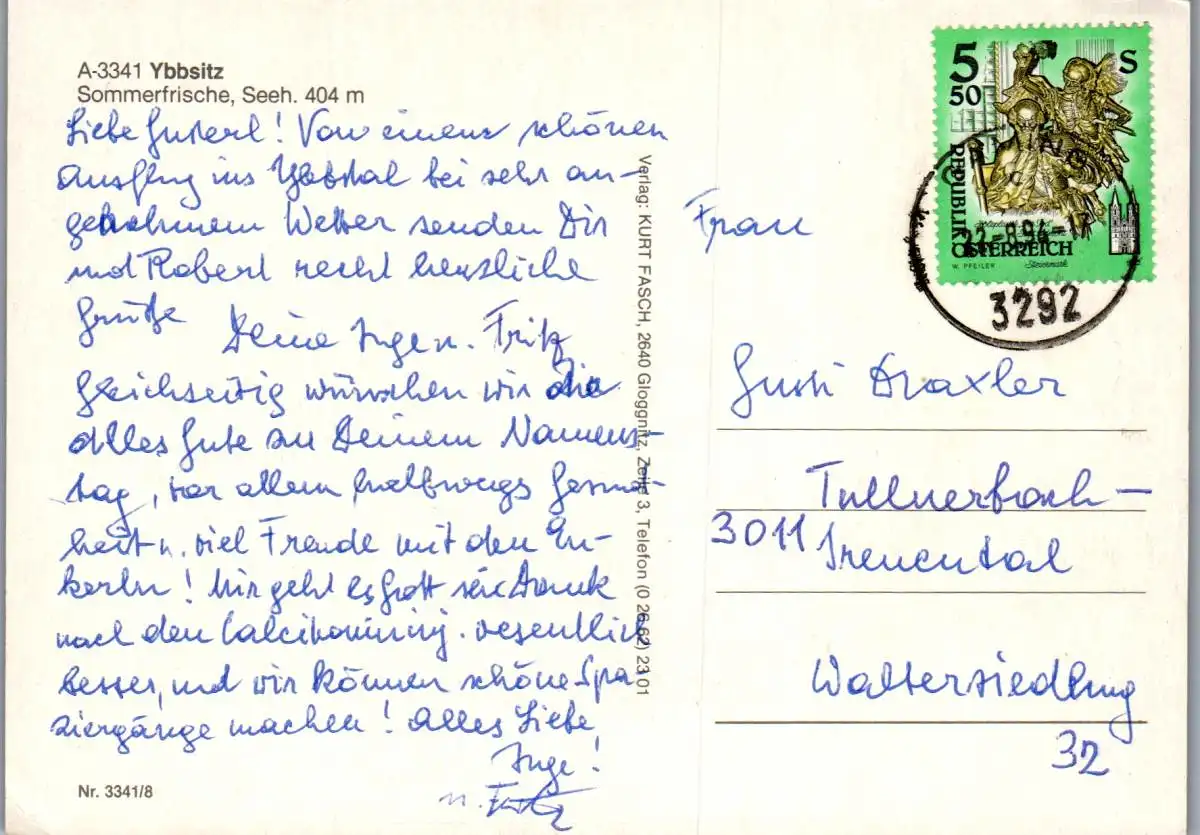 A-3341 Ybbsitz
Sommerfrische, Seeh. 404 m
Liebe Gusterl! Von einem schönen
Ausflug ins Ybbstal bei sehr an-
genehmem Wetter senden Dir
und Robert recht herzliche
Grüße Deine Inge u. Fritz
Gleichzeitig wünschen wir Dir
alles Gute zu Deinem Namens-
tag, vor allem halbwegs Gesund-
heit u. viel Freude mit den En-
kerln! Mir geht es Gott sei Dank
nach den Calcitonininj. wesentlich
besser, und wir können schöne Spa-
ziergänge machen! Alles Liebe
Inge!
u. Fritz
Nr. 3341/8
Verlag: KURT FASCH, 2640 Gloggnitz, Zeile 3, Telefon (0 26 62) 23 01
5 50 S
REPUBLIK
ÖSTERREICH
W. PFEILER Steiermark
22.-8.94-17
3292
Frau
Gusti Draxler
Tullnerbach-
3011 Irenental
Waltersiedlung
32